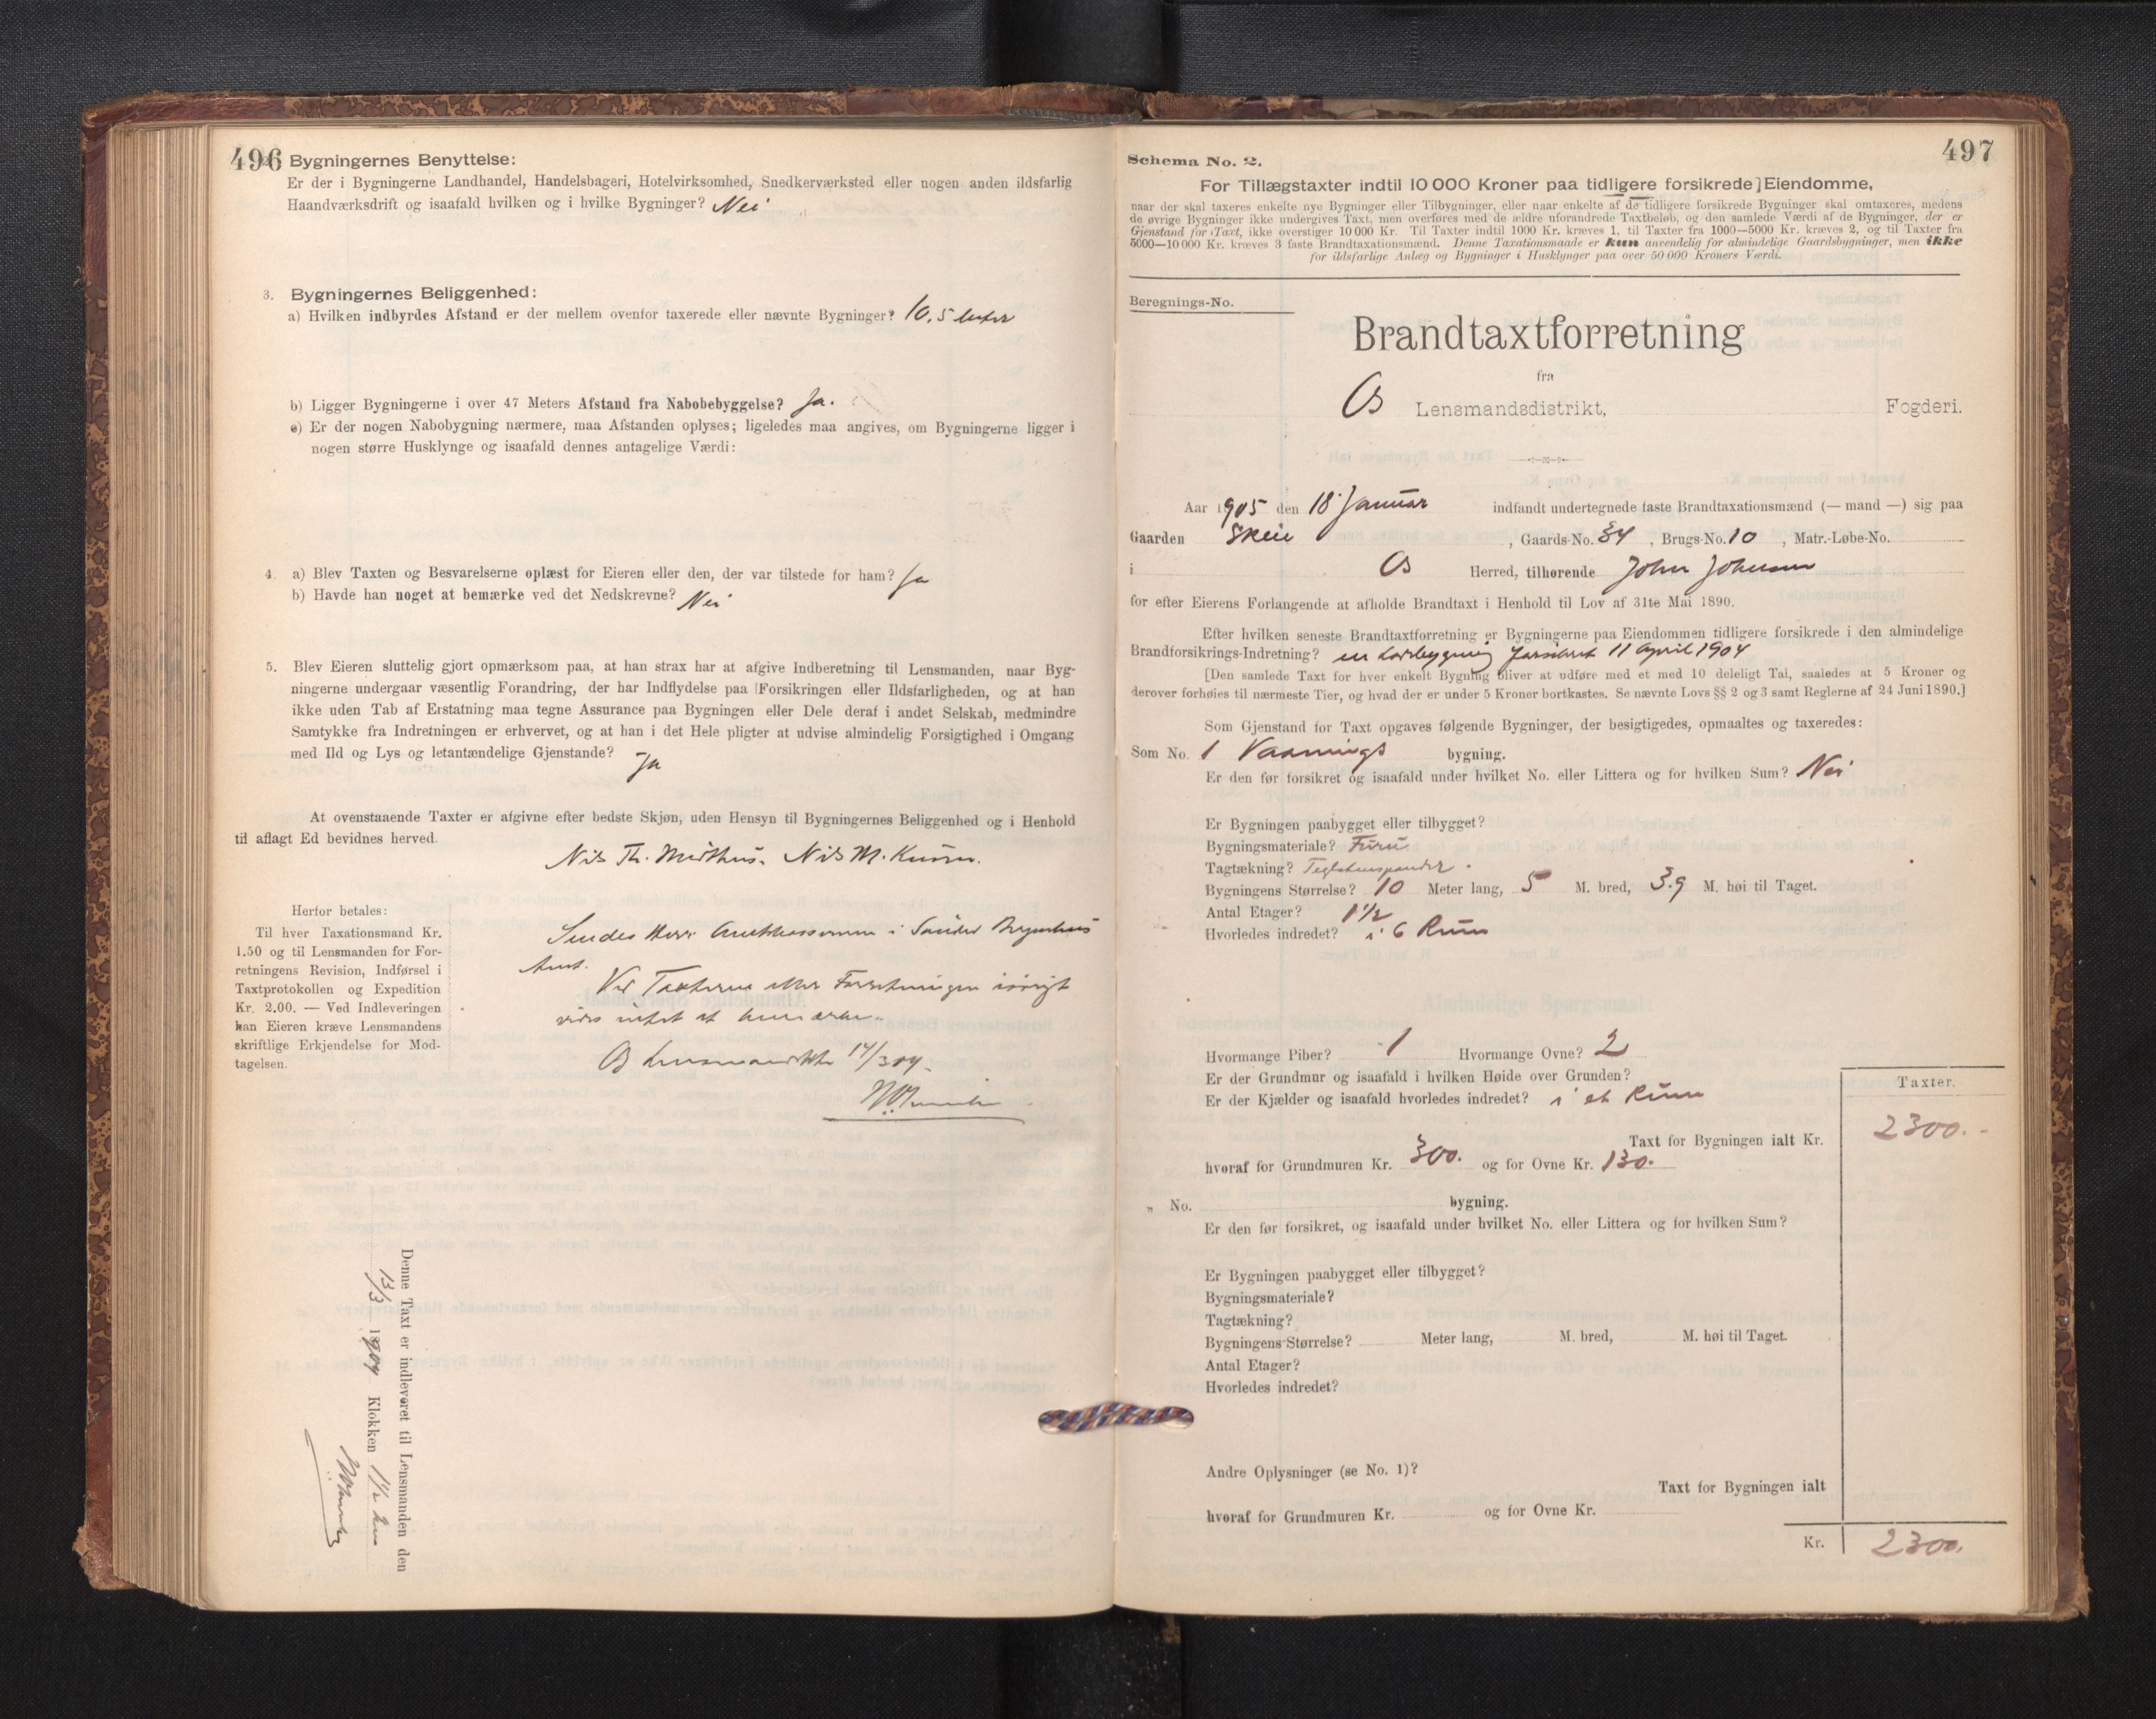 496
2. Bygningernes Benyttelse:
Er der i Bygningerne Landhandel, Handelsbageri, Hotelvirksomhed, Snedkerværksted eller nogen anden ildsfarlig
Haandværksdrift og isaafald hvilken og i hvilke Bygninger? Nei
3. Bygningernes Beliggenhed:
a) Hvilken indbyrdes Afstand er der mellem ovenfor taxerede eller nævnte Bygninger? 10,5 Meter
b) Ligger Bygningerne i over 47 Meters Afstand fra Nabobebyggelse? Ja.
c) Er der nogen Nabobygning nærmere, maa Afstanden oplyses; ligeledes maa angives, om Bygningerne ligger i
nogen større Husklynge og isaafald dennes antagelige Værdi:
4. a) Blev Taxten og Besvarelserne oplæst for Eieren eller den, der var tilstede for ham? Ja
b) Havde han noget at bemærke ved det Nedskrevne? Nei
5. Blev Eieren sluttelig gjort opmærksom paa, at han strax har at afgive Indberetning til Lensmanden, naar Byg-
ningerne undergaar væsentlig Forandring, der har Indflydelse paa Forsikringen eller Ildsfarligheden, og at han
ikke uden Tab af Erstatning maa tegne Assurance paa Bygningen eller Dele deraf i andet Selskab, medmindre
Samtykke fra Indretningen er erhvervet, og at han i det Hele pligter at udvise almindelig Forsigtighed i Omgang
med Ild og Lys og letantændelige Gjenstande? Ja
At ovenstaaende Taxter er afgivne efter bedste Skjøn, uden Hensyn til Bygningernes Beliggenhed og i Henhold
til aflagt Ed bevidnes herved.
Nils Th. Nils M.
Herfor betales:
Til hver Taxationsmand Kr.
1.50 og til Lensmanden for For-
retningens Revision, Indførsel i
Taxtprotokollen og Expedition
Kr. 2.00. — Ved Indleveringen
kan Eieren kræve Lensmandens
skriftlige Erkjendelse for Mod-
tagelsen.
Sendes Herr i Søndre Bergenhus
Amt.
Ved Taxterne eller Forretningen iøvrigt
vides intet at bemærke.
Os 14/3 04.
Denne Taxt er indleveret til Lensmanden den
13/3 1904 Klokken 1 1/2
497
Schema No. 2.
For Tillægstaxter indtil 10 000 Kroner paa tidligere forsikrede Eiendomme,
naar der skal taxeres enkelte nye Bygninger eller Tilbygninger, eller naar enkelte af de tidligere forsikrede Bygninger skal omtaxeres, medens
de øvrige Bygninger ikke undergives Taxt, men overføres med de ældre uforandrede Taxtbeløb, og den samlede Værdi af de Bygninger, der er
Gjenstand for Taxt, ikke overstiger 10 000 Kr. Til Taxter indtil 1000 Kr. kræves 1, til Taxter fra 1000—5000 Kr. kræves 2, og til Taxter fra
5000—10 000 Kr. kræves 3 faste Brandtaxationsmænd. Denne Taxationsmaade er kun anvendelig for almindelige Gaardsbygninger, men ikke
for ildsfarlige Anlæg og Bygninger i Husklynger paa over 50 000 Kroners Værdi.
Beregnings-No.
Brandtaxtforretning
fra
Os Lensmandsdistrikt, Fogderi.
Aar 1905 den 18 Januar indfandt undertegnede faste Brandtaxationsmænd (— mand —) sig paa
Gaarden Skeie, Gaards-No. 34, Brugs-No. 10, Matr.-Løbe-No.
i Os Herred, tilhørende John Johnsen
for efter Eierens Forlangende at afholde Brandtaxt i Henhold til Lov af 31te Mai 1890.
Efter hvilken seneste Brandtaxtforretning er Bygningerne paa Eiendommen tidligere forsikrede i den almindelige
Brandforsikrings-Indretning? en forsikret 11 April 1904
[Den samlede Taxt for hver enkelt Bygning bliver at udføre med et med 10 deleligt Tal, saaledes at 5 Kroner og
derover forhøies til nærmeste Tier, og hvad der er under 5 Kroner bortkastes. Se nævnte Lovs §§ 2 og 3 samt Reglerne af 24 Juni 1890.]
Som Gjenstand for Taxt opgaves følgende Bygninger, der besigtigedes, opmaaltes og taxeredes:
Som No. 1 Vaanings bygning.
Er den før forsikret og isaafald under hvilket No. eller Littera og for hvilken Sum? Nei
Er Bygningen paabygget eller tilbygget?
Bygningsmateriale? Furu
Tagtækning?
Bygningens Størrelse? 10 Meter lang, 5 M. bred, 3.9 M. høi til Taget.
Antal Etager? 1 1/2
Hvorledes indredet? i 6 Rum
Hvormange Piber? 1 Hvormange Ovne? 2
Er der Grundmur og isaafald i hvilken Høide over Grunden?
Er der Kjælder og isaafald hvorledes indredet? i et Rum
Taxter.
Taxt for Bygningen ialt Kr. 2300.-
hvoraf for Grundmuren Kr. 300. og for Ovne Kr. 130.
„ No. bygning.
Er den før forsikret, og isaafald under hvilket No. eller Littera og for hvilken Sum?
Er Bygningen paabygget eller tilbygget?
Bygningsmateriale?
Tagtækning?
Bygningens Størrelse? Meter lang, M. bred, M. høi til Taget.
Antal Etager?
Hvorledes indredet?
Andre Oplysninger (se No. 1)?
Taxt for Bygningen ialt
hvoraf for Grundmuren Kr. og for Ovne Kr.
Kr. 2300.